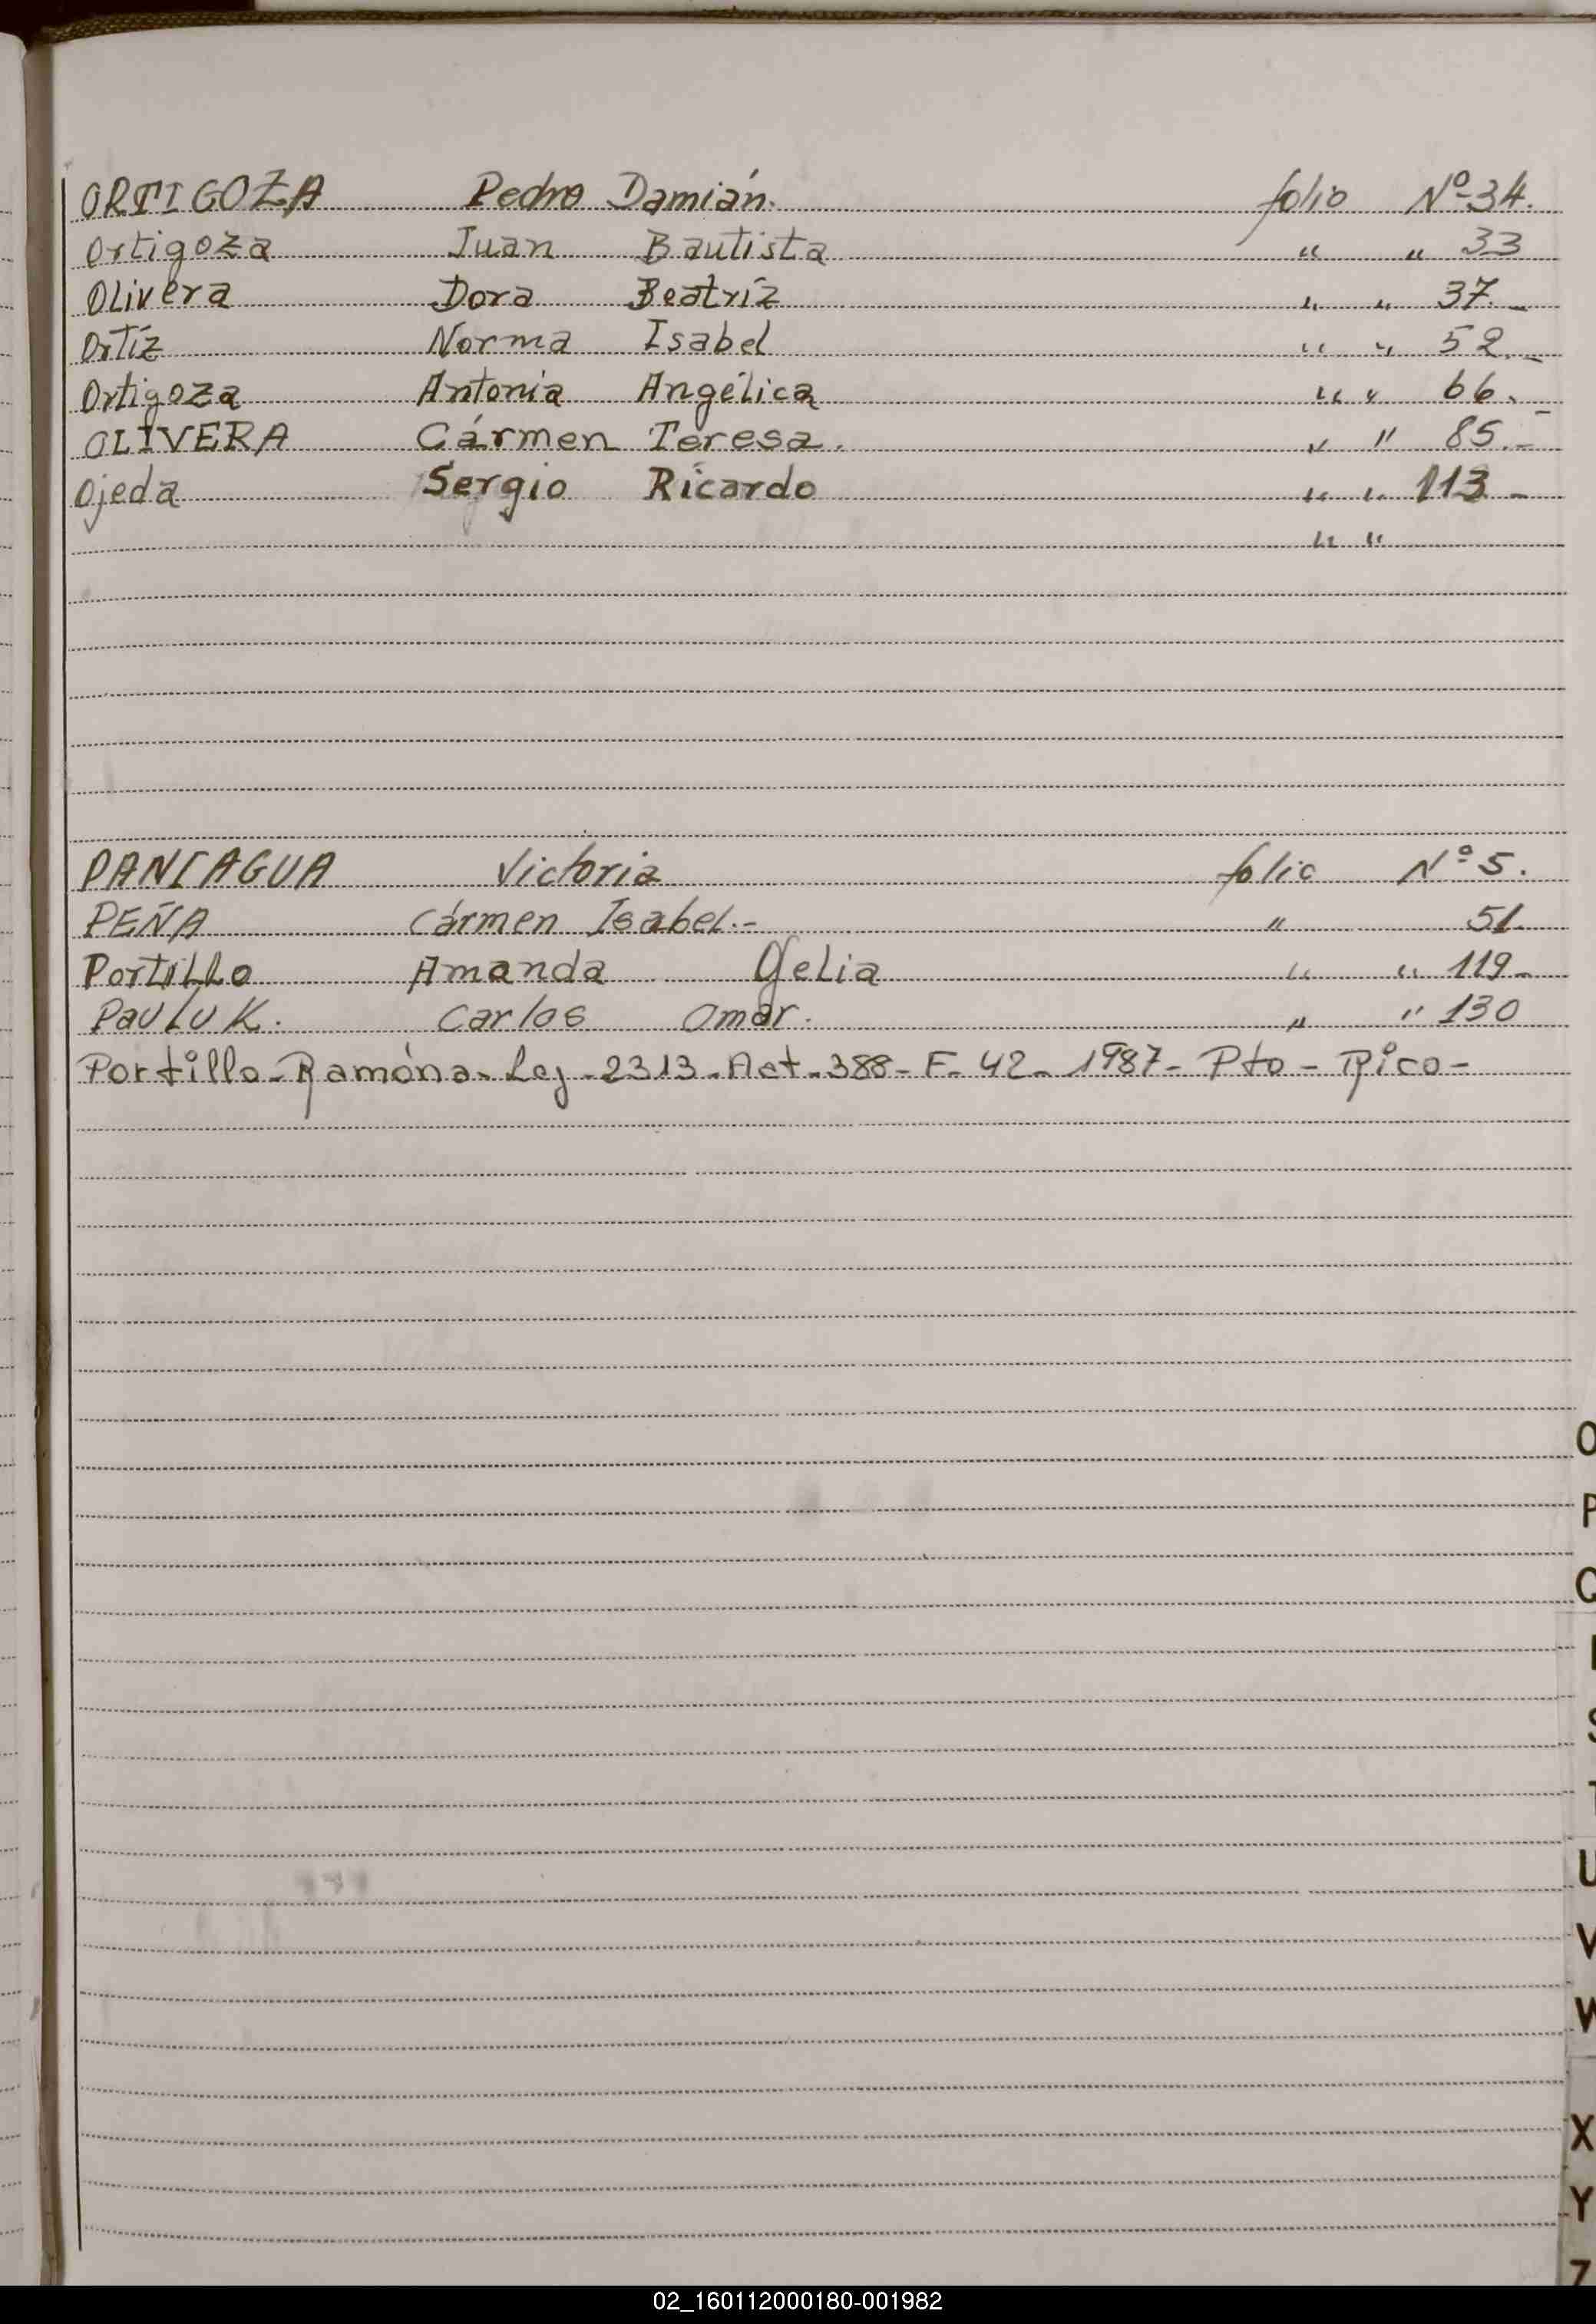 ORTIGOZA Pedro Damián. folio Nº 34.
Ortigoza Juan Bautista " " 33
Olivera Dora Beatríz " " 37.-
Ortíz Norma Isabel " " 52.-
Ortigoza Antonia Angélica " " 66.-
OLIVERA Cármen Teresa. " " 85.-
Ojeda Sergio Ricardo " " 113-
" "
PANIAGUA Victoria folio Nº 5.
PEÑA Cármen Isabel.- " 51.
PortiLLo Amanda Ofelia " " 119-
PauLuK. Carlos Omar. " " 130
Portillo-Ramóna-Leg-2313-Act-388-F-42-1987-Pto-Rico-
O
P
Q
S
T
U
V
W
X
Y
Z
02_160112000180-001982